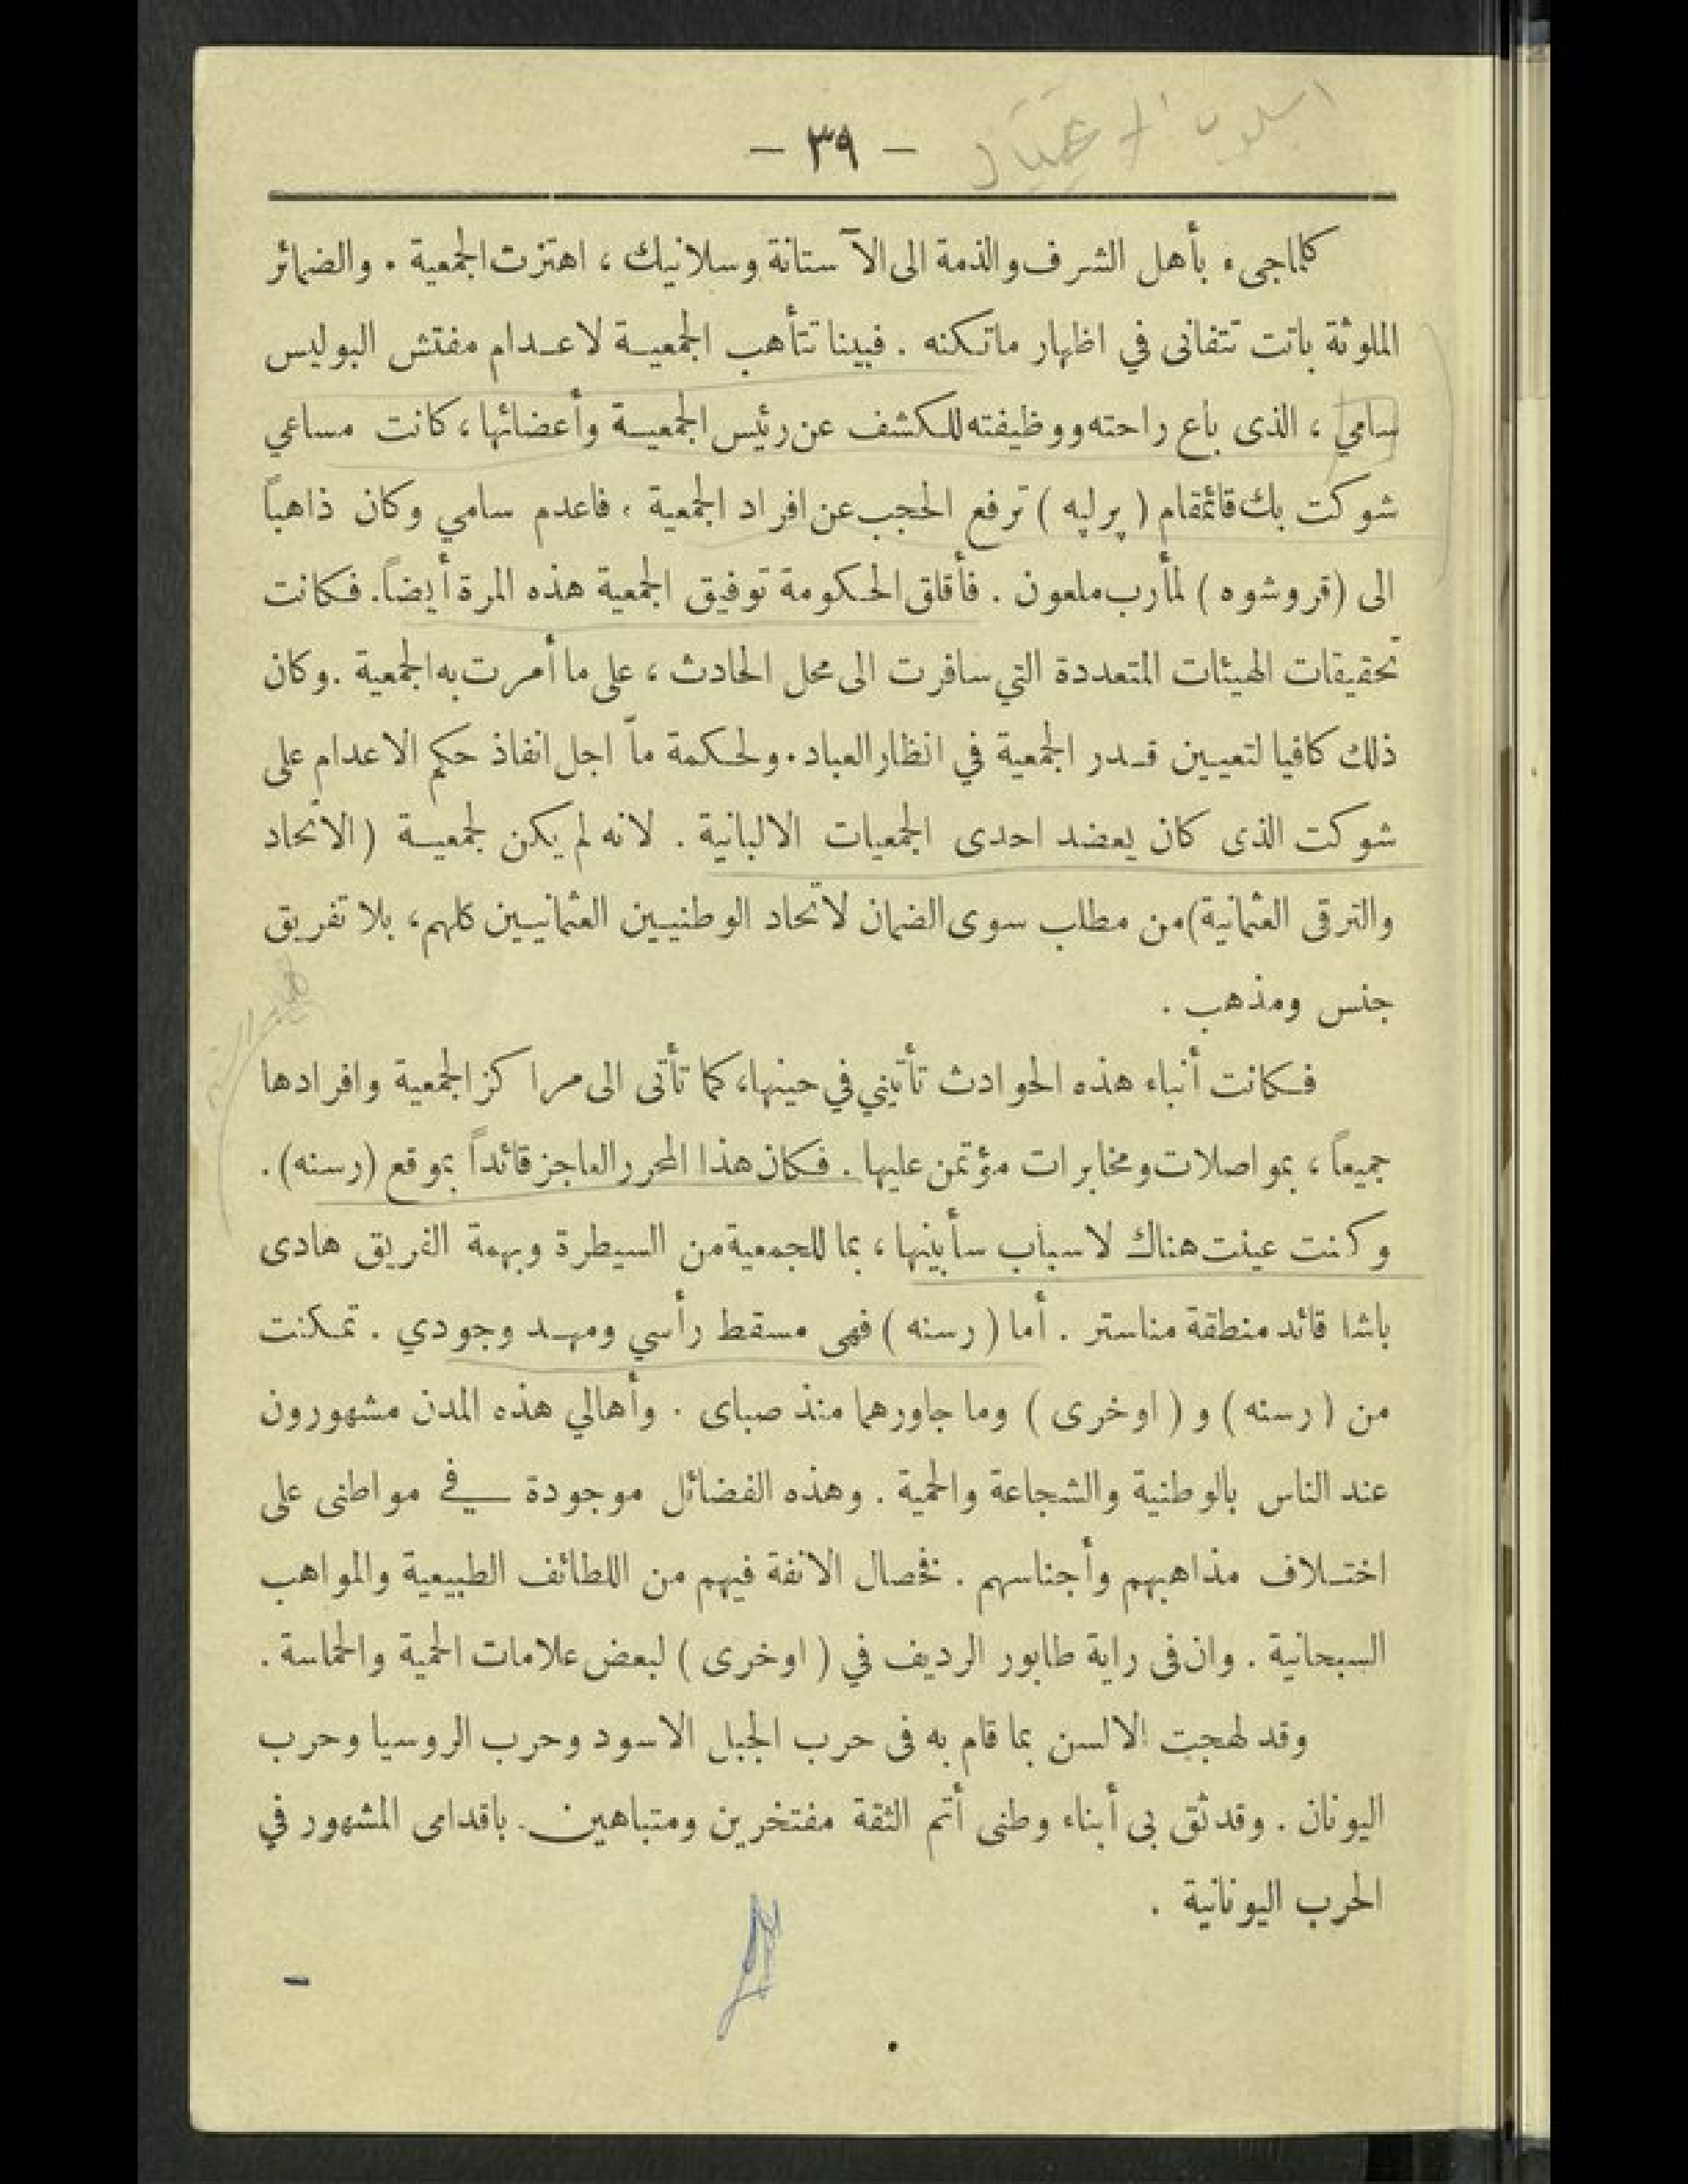 — ٣٩ —
كلما جىء بأهل الشرف والذمة الى الآستانة وسلانيك ، اهتزت الجمعية . والضمائر
الملوثة باتت تتفانى في اظهار ماتكنه . فبينا تتأهب الجمعيـة لاعـدام مفتش البوليس
سامي ، الذى باع راحته ووظيفته للكشف عن رئيس الجمعيـة وأعضائها ، كانت مساعي
شوكت بك قائمقام ( پرلپه ) ترفع الحجب عن افراد الجمعية ، فاعدم سامي وكان ذاهباً
الى (قروشوه ) لمأرب ملعون . فأقلق الحكومة توفيق الجمعية هذه المرة أيضاً. فكانت
تحقيقات الهيئات المتعددة التي سافرت الى محل الحادث ، على ما أمرت به الجمعية . وكان
ذلك كافيا لتعيين قـدر الجمعية في انظار العباد . ولحكمة ماّ اجل انفاذ حكم الاعدام على
شوكت الذى كان يعضد احدى الجمعيات الالبانية . لانه لم يكن لجمعيـة (الاتحاد
والترقى العثمانية) من مطلب سوى الضمان لاتحاد الوطنيين العثمانيين كلهم ، بلا تفريق
جنس ومذهب .
فكانت أنباء هذه الحوادث تأتيني في حينها ، كما تأتى الى مراكز الجمعية وافرادها
جميعاً ، بمواصلات ومخابرات مؤتمن عليها . فكان هذا المحرر العاجز قائداً بموقع (رسنه) .
وكنت عينت هناك لاسباب سأبينها ، بما للجمعية من السيطرة وبهمة الفريق هادى
باشا قائد منطقة مناستر . أما ( رسنه ) فهى مسقط رأسي ومهـد وجودي . تمكنت
من ( رسنه ) و ( اوخرى ) وما جاورهما منذ صباى . وأهالي هذه المدن مشهورون
عند الناس بالوطنية والشجاعة والحمية . وهذه الفضائل موجودة فى مواطنى على
اختـلاف مذاهبهم وأجناسهم . فخصال الانفة فيهم من اللطائف الطبيعية والمواهب
السبحانية . وان فى راية طابور الرديف في ( اوخرى ) لبعض علامات الحمية والحماسة .
وقد لهجت الالسن بما قام به فى حرب الجبل الاسود وحرب الروسيا وحرب
اليونان . وقد ثق بى أبناء وطنى أتم الثقة مفتخرين ومتباهين . باقدامى المشهور في
الحرب اليونانية .